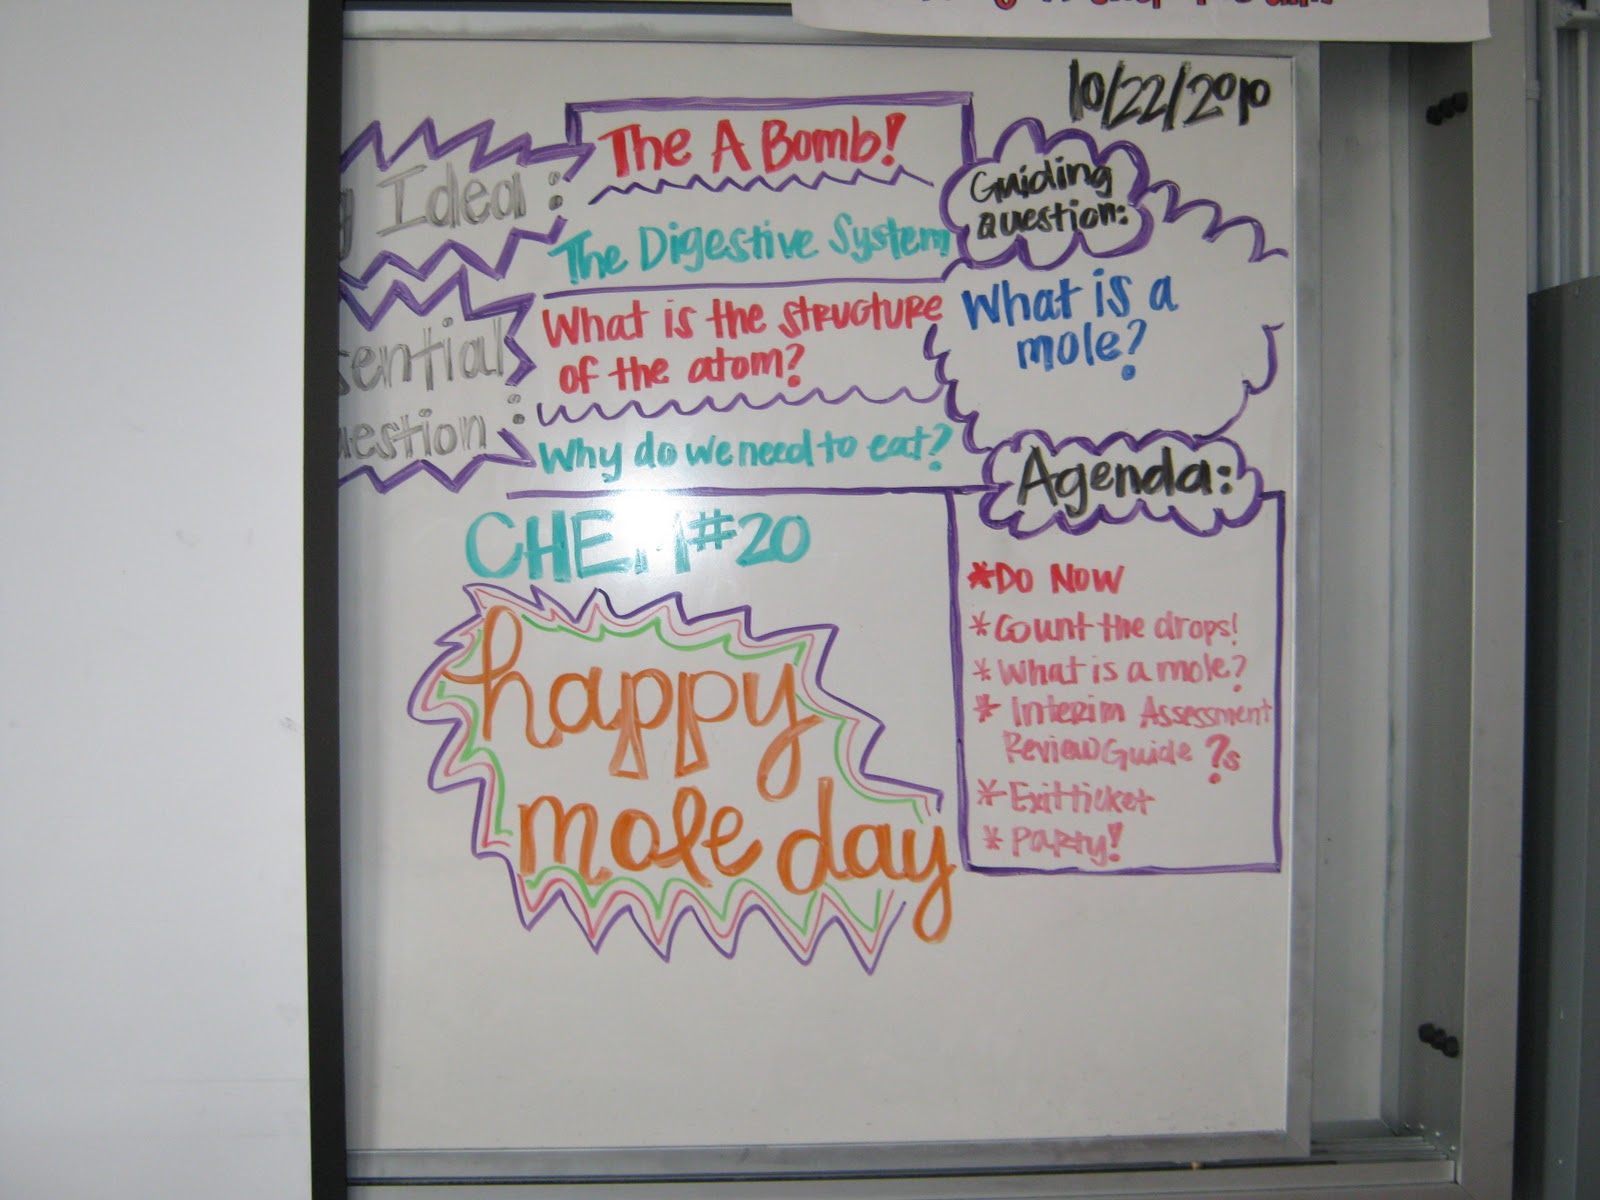 10/22/2010
Idea:
The A Bomb!
The Digestive System
What is the structure
of the atom?
Why do we need to eat?
Guiding
question:
What is a
mole?
CHEM #20
happy
mole day
Agenda:
*Do Now
*Count the drops!
*What is a mole?
* Interim Assessment
Review Guide ?s
*Exit ticket
*Party!